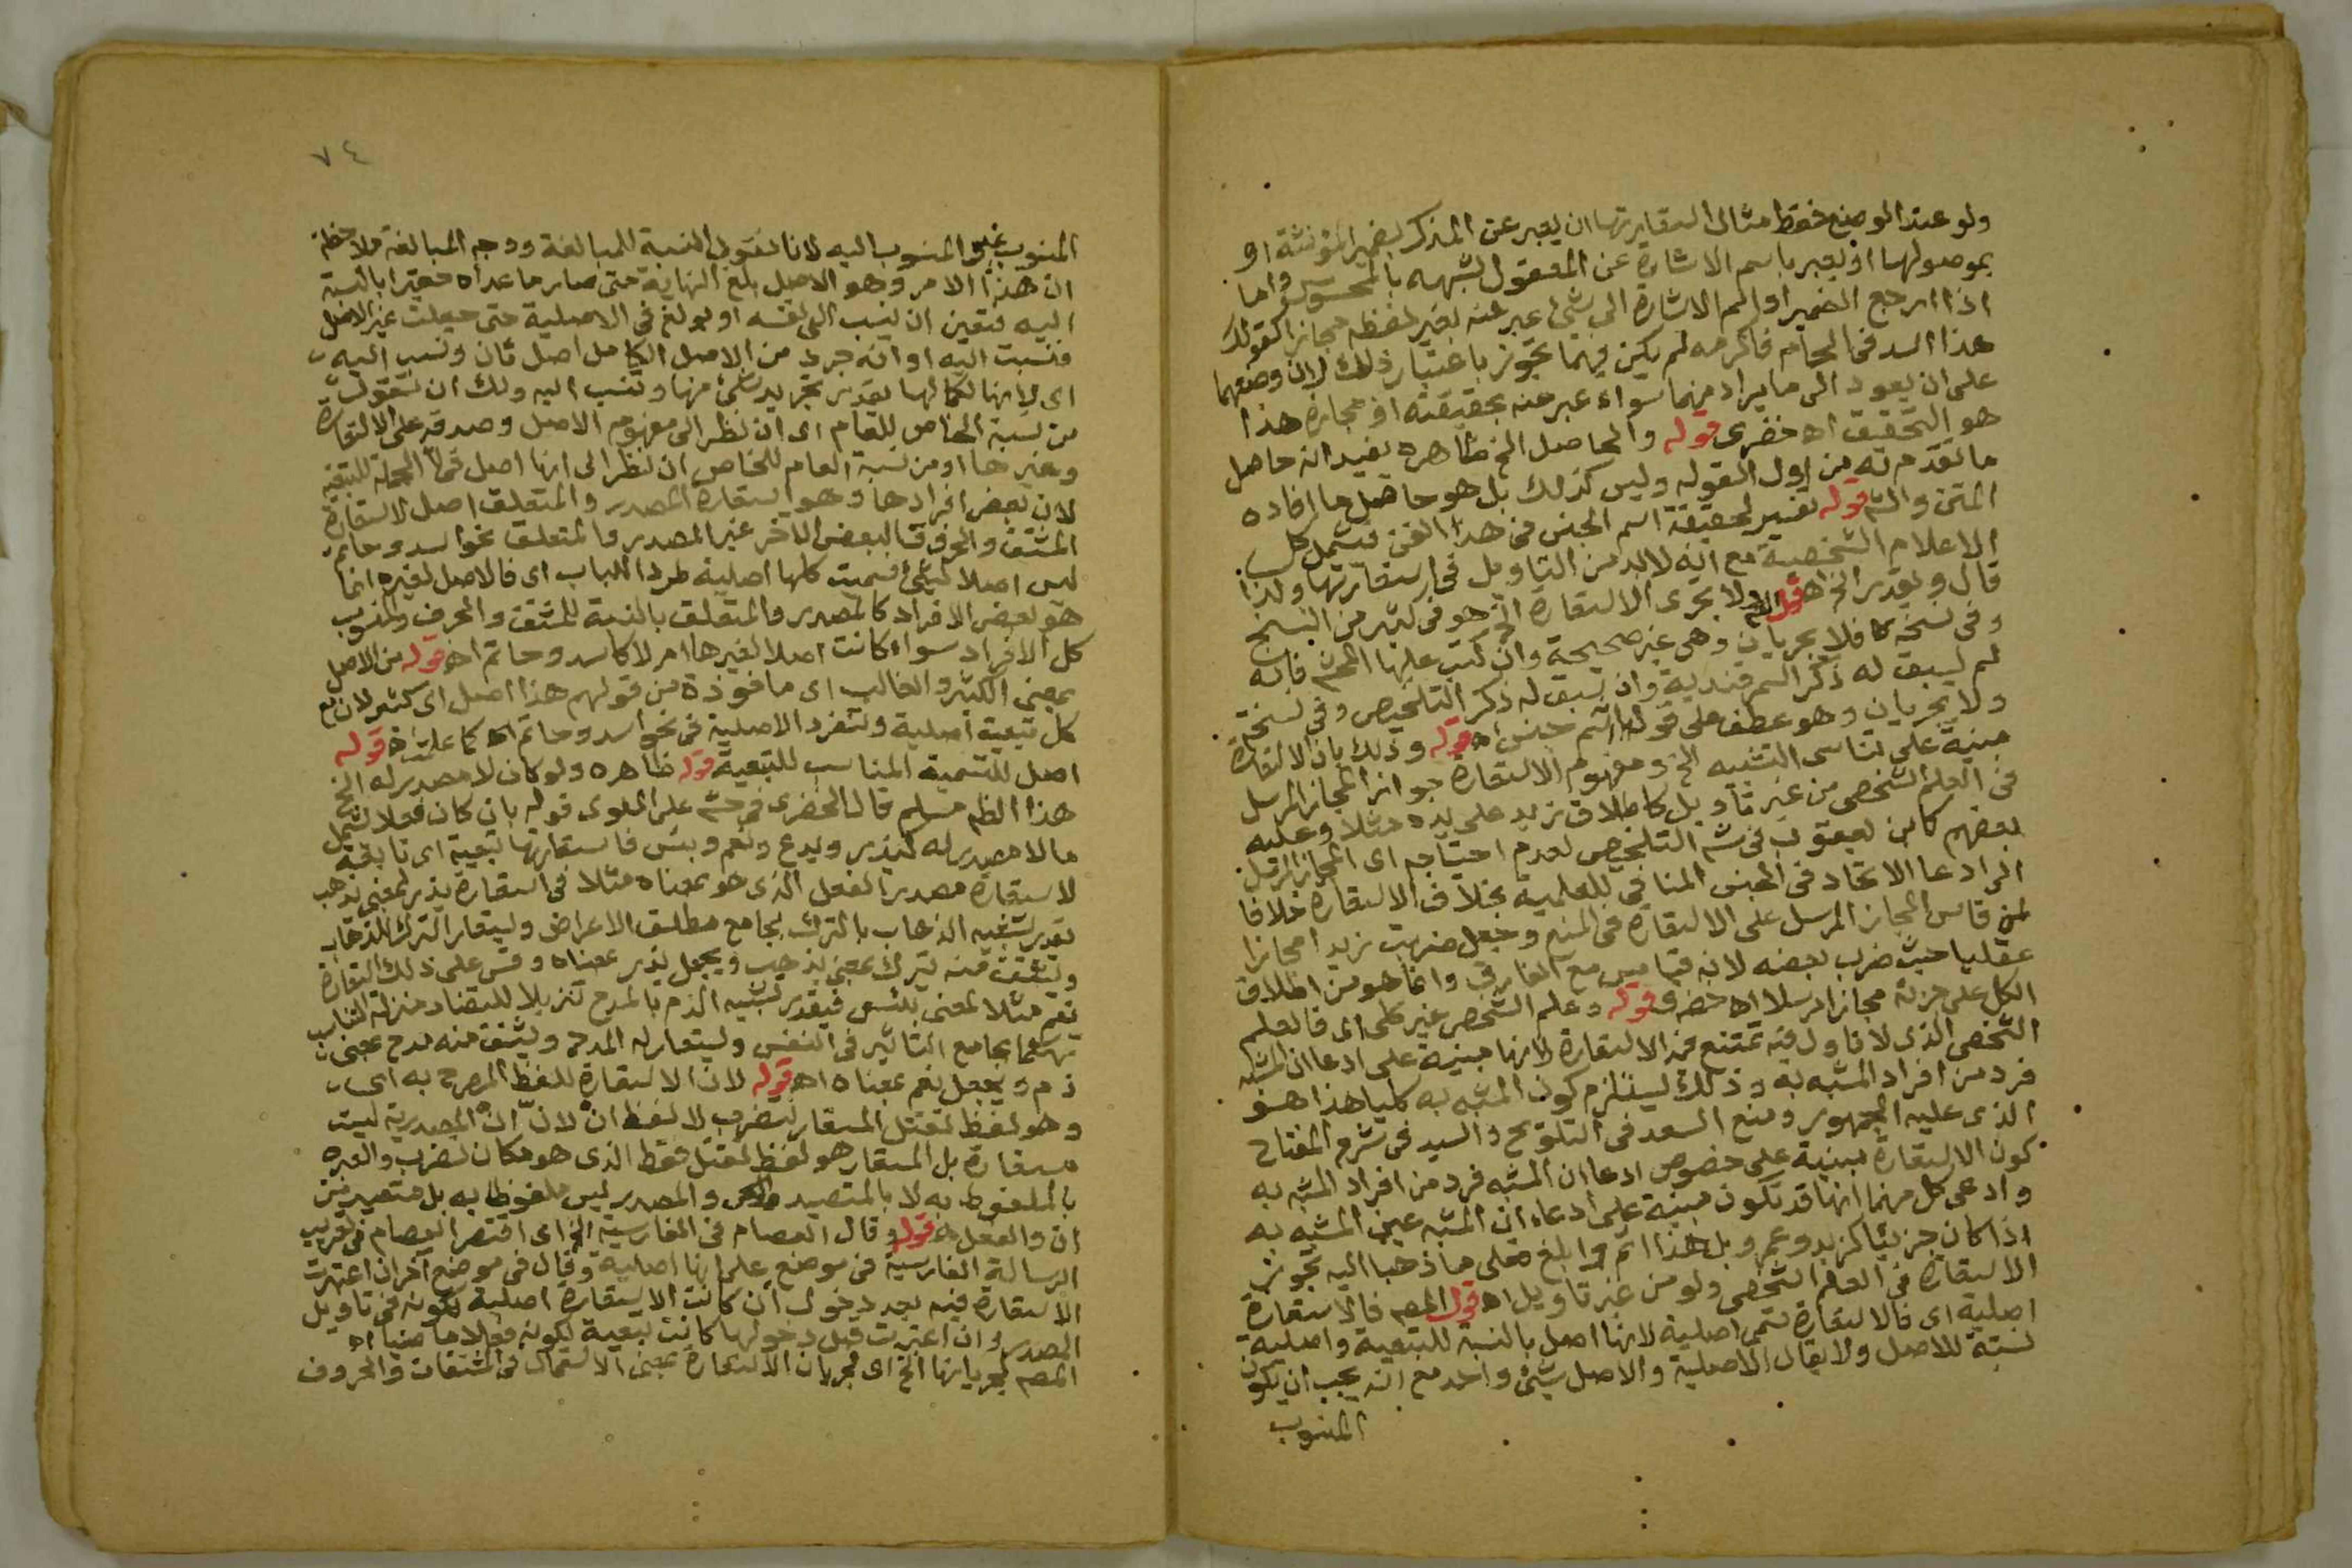 ولو عند الوضع فقط مثال استعارتها ان يعبر عن المذكر بضمير المؤنثة او
بموصولها او يعبر باسم الاشارة عن المعقول لشبهه بالمحسوس واما
اذا ارجع الضمير او اسم الاشارة الى شئ عبر عنه بغير لفظه مجازا كقولك
هذا اسد فى الحمام فاكرمه لم يكن فيهما تجوز باعتبار ذلك لان وضعهما
على ان يعود الى ما يراد منهما سواء عبر عنه بحقيقته او مجازه هذا
هو التحقيق اه خضرى قوله والحاصل الخ ظاهره يفيد انه حاصل
ما تقدم له من اول القوله وليس كذلك بل هو حاصل ما افاده
المتن والش قوله تفسير لحقيقة اسم الجنس فى هذا الفن فيشمل كل
الاعلام الشخصية مع انه لا بد من التاويل فى استعارتها ولذا
قال ويقدر الخ اه ولا تجرى الاستعارة الخ هو فى كثير من النسخ
وفى نسخة كا فلا يجريان وهى غير صحيحة وان كتب عليها المحـ فانه
لم يسبق له ذكر السمرقندية وان سبق له ذكر التلخيص وفى نسخة
ولا يجريان وهو عطف على قوله اسم جنس اه قوله وذلك بان الاستعارة
مبنية على تناسى التشبيه الخ ومفهوم الاستعارة جواز المجاز المرسل
فى العلم الشخصى من غير تاويل كاطلاق زيد على يده مثلا وعليه
بعضهم كابن يعقوب فى ش التلخيص لعدم احتياجه اى المجاز المرسل
الى ادعا الاتحاد فى الجنس المنافى للعلمية بخلاف الاستعارة خلافا
لمن قاس المجاز المرسل على الاستعارة فى المنع وجعل ضربت زيدا مجازا
عقليا حيث ضرب بعضه لانه قياس مع الفارق وانما هو من اطلاق
الكل على جزئه مجازا مرسلا اه خضرى قوله وعلم الشخص غير كلى اى فالعلم
الشخصى الذى لا تاول فيه تمتنع فيه الاستعارة لانها مبنية على ادعا ان المشبه
فرد من افراد المشبه به وذلك يستلزم كون المشبه به كليا هذا هو
الذى عليه الجمهور ومنع السعد فى التلويح والسيد فى شرح المفتاح
كون الاستعارة مبنية على خصوص ادعا ان المشبه فرد من افراد المشبه به
وادعى كل منهما انها قد تكون مبنية على ادعاء ان المشبه عين المشبه به
اذا كان جزئيا كزيد وعمرو بل هذا اتم وابلغ فعلى ما ذهبا اليه تجوز
الاستعارة فى العلم الشخصى ولو من غير تاويل اه قول المصـ فالاستعارة
اصلية اى فالاستعارة تسمى اصلية لانها اصل بالنسبة للتبعية واصلية
نسبة للاصل ولا يقال الاصلية والاصل شئ واحد مع انه يجب ان يكون
المنسوب
٧٤
المنسوب غير المنسوب اليه لانا نقول النسبة للمبالغة ووجه المبالغة ملاحظة
ان هذا الامر وهو الاصل بلغ النهاية حتى صار ما عداه حقيرا بالنسبة
اليه فتعين ان ينسب الى نفسه او بولغ فى الاصلية حتى جعلت غير الاصل
فنسبت اليه او انه جرد من الاصل الكامل اصل ثان ونسب اليه
اى لانها لكمالها يقدر تجريد شئ منها وتنسب اليه ولك ان تقول
من نسبة الخاص للعام اى ان نظر الى مفهوم الاصل وصدقه على الاستعارة
وغيرها او من نسبة العام للخاص ان نظر الى انها اصل فى الجملة للتبعية
لان بعض افرادها وهو استعارة المصدر والمتعلق اصل لاستعارة
المشتق والحرف فالبعض الآخر غير المصدر والمتعلق نحو اسد وحاتم
ليس اصلا لشئ فسميت كلها اصلية طردا للباب اى فالاصل لغيره انما
هو بعض الافراد كالمصدر والمتعلق بالنسبة للمشتق والحرف والمنسوب
كل الافراد سواء كانت اصلا لغيرها ام لا كاسد وحاتم اه قوله من الاصل
بمعنى الكثير والغالب اى ماخوذة من قولهم هذا اصل اى كثير لان مع
كل تبعية اصلية وتنفرد الاصلية فى نحو اسد وحاتم اه كما علمت اه قوله
اصل للتسمية المناسب للتبعية قوله ظاهره ولو كان لا مصدر له الخ
هذا الظـ مسلم قال الخضرى فى حش على الملوى قوله بان كان فعلا يشمل
ما لا مصدر له كيذر ويدع ونعم وبئس فاستعارتها تبعية اى تابعة
لاستعارة مصدر الفعل الذى هو بمعناه مثلا فى استعارة يذر لمعنى يذهب
يقدر تشبيه الذهاب بالترك بجامع مطلق الاعراض ويستعار الترك للذهاب
ويشتق منه يترك بمعنى يذهب ويجعل يذر بمعناه وقس على ذلك استعارة
نعم مثلا لمعنى بئس فيقدر تشبيه الذم بالمدح تنزيلا للتضاد منزلة التناسب
تهكما بجامع التاثير فى النفس ويستعار له المدح ويشتق منه مدح بمعنى
ذم ويجعل نعم بمعناه اه قوله لان الاستعارة للفظ المصرح به اى
وهو لفظ لقتل المستعار لضرب لا لفظ ان لان ان المصدرية ليست
مستعارة بل المستعار هو لفظ لقتل فقط الذى هو مكان لضرب والعبرة
بالملفوظ به لا بالمتصيد والمصدر ليس ملفوظا به بل متصيد من
ان والفعل اه قوله وقال العصام فى الفارسية الخ اى اقتصر العصام فى تعريب
الرسالة الفارسية فى موضع على انها اصلية وقال فى موضع آخر ان اعتبرت
الاستعارة فيه بعد دخول ان كانت الاستعارة اصلية لكونه فى تاويل
المصدر وان اعتبرت قبل دخولها كانت تبعية لكونه فعلا ماضيا اه
المصـ لجريانها الخ اى لجريان الاستعارة بمعنى الاستعمال فى المشتقات والحروف